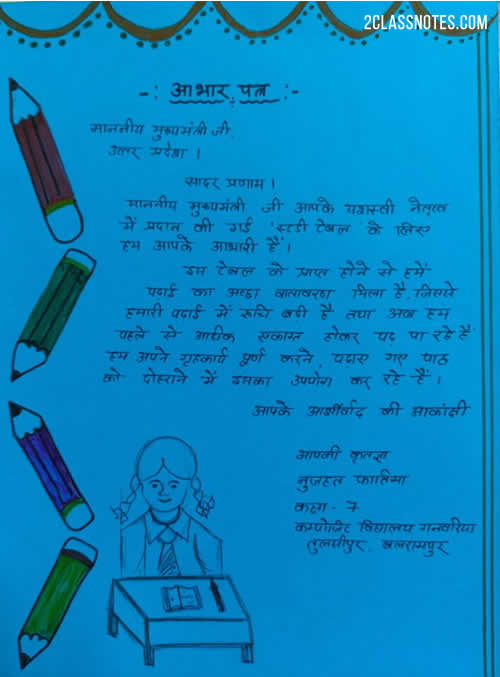 2CLASSNOTES.COM
-: आभार पत्र :-
माननीय मुख्यमंत्री जी,
उत्तर प्रदेश ।
सादर प्रणाम ।
माननीय मुख्यमंत्री जी आपके यशस्वी नेतृत्व
में प्रदान की गई 'स्टडी टेबल' के लिए
हम आपके आभारी हैं ।
इस टेबल को प्राप्त होने से हमें
पढाई का अच्छा वातावरण मिला है, जिससे
हमारी पढाई में रूचि बढी है तथा अब हम
पहले से अधिक एकाग्र होकर पढ़ पा रहे हैं
हम अपने गृहकार्य पूर्ण करने, पढाए गए पाठ
को दोहराने में इसका उपयोग कर रहे हैं ।
आपके आर्शीवाद की आकांक्षी
आपकी कृतज्ञ
नुजहत फातिमा
कक्षा - 7
कम्पोजिट विद्यालय गनवरिया
तुलसीपुर, बलरामपुर